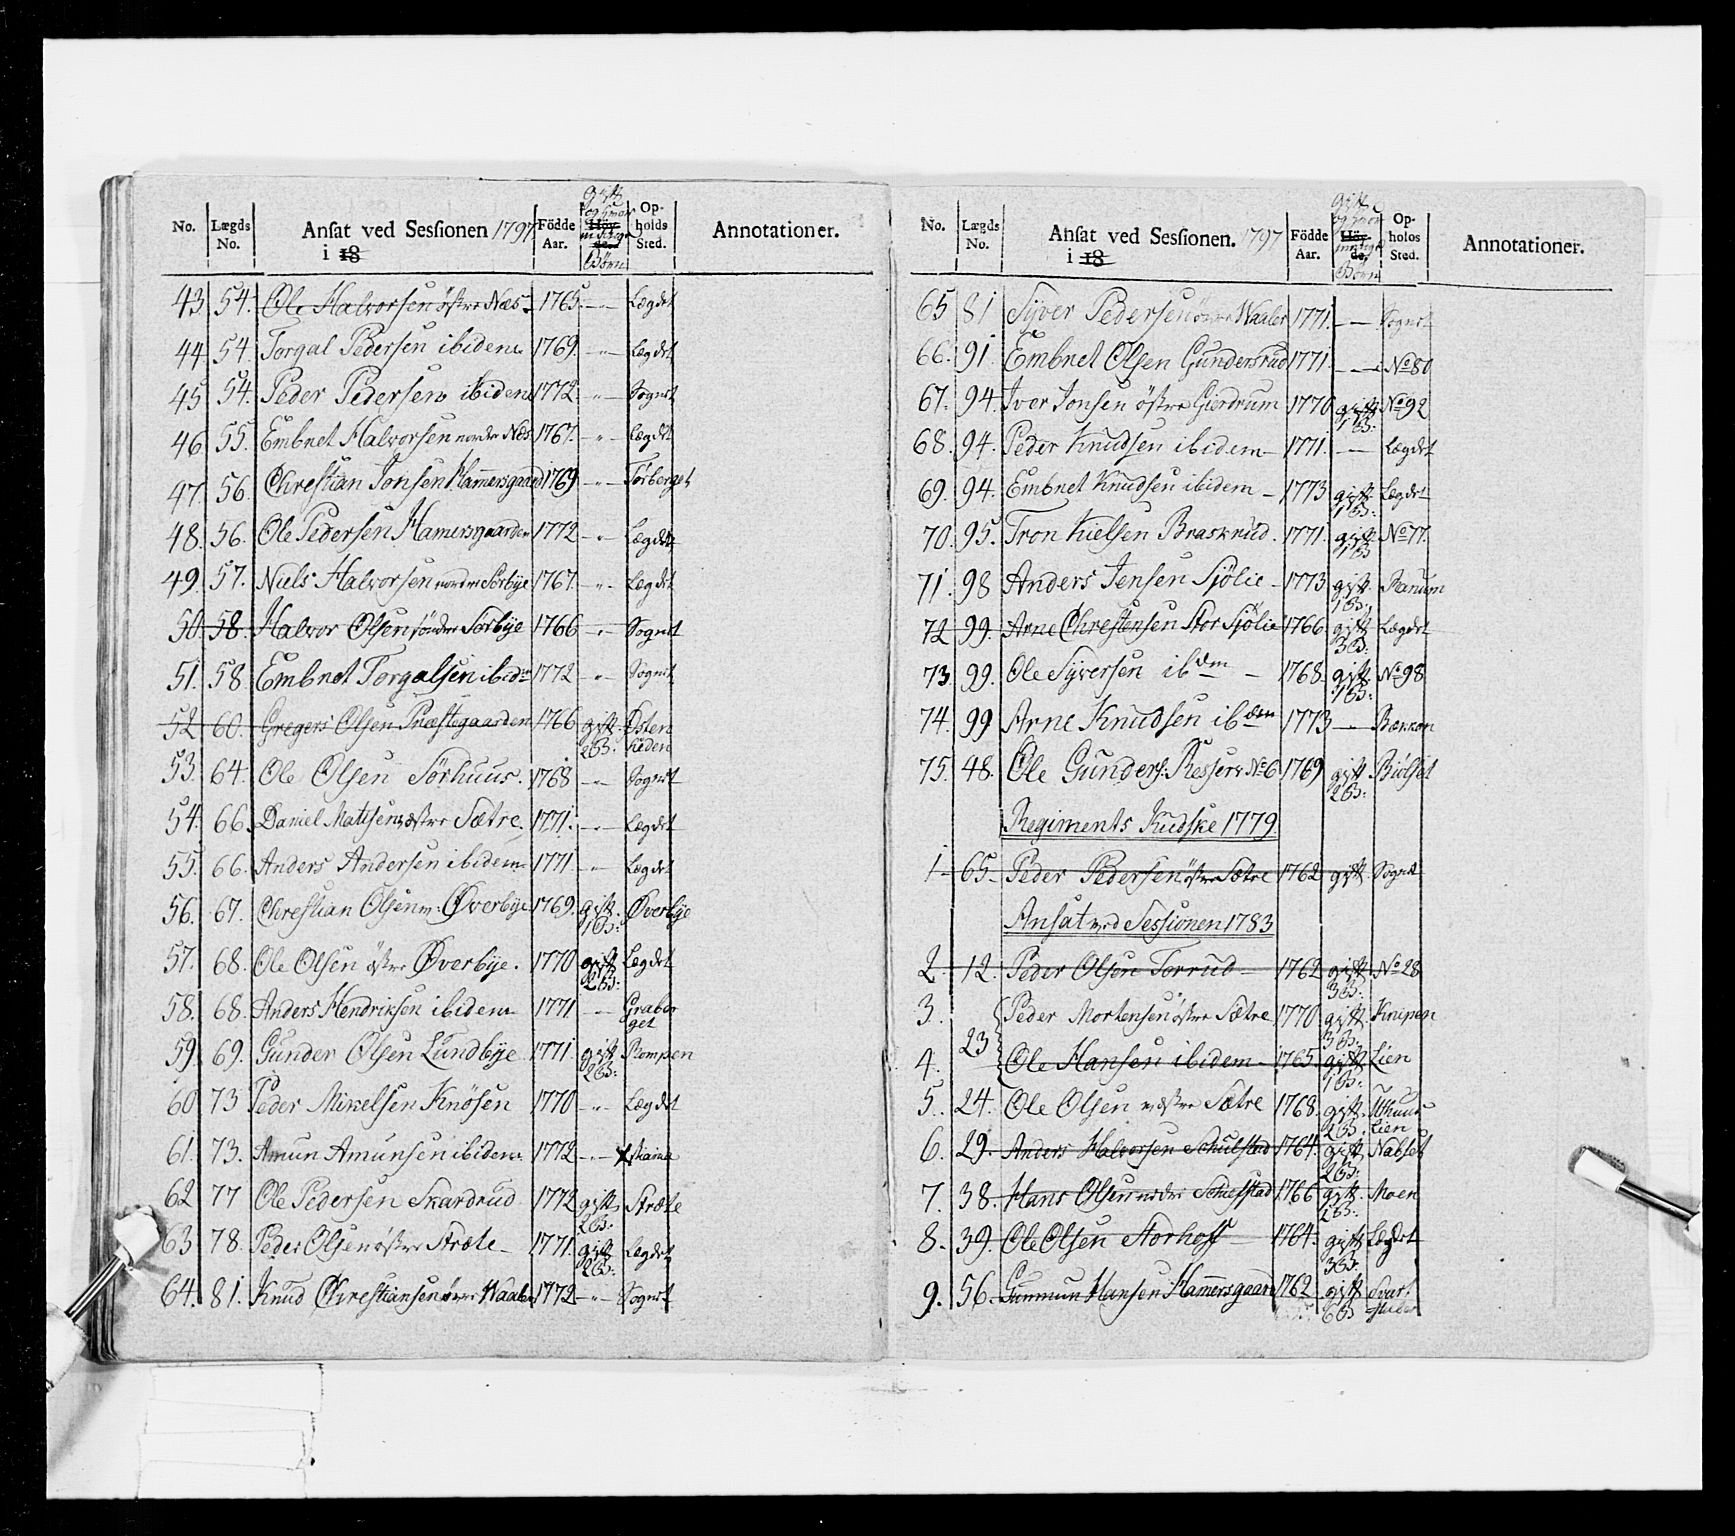 No. Lægds No. Ansat ved Sessionen 1797 i 18 Födde Aar. gift og Börn Op-holds Sted. Annotationer.
43. 54. Ole Halvorsen östre Næs 1765. -"- Lægdet
44 54. Torgal Pedersen ibidem 1769. -"- Lægdet
45 54. Peder Pedersen ibidem 1772. -"- Sognet
46 55. Embret Halvorsen nordre Næs 1767. -"- Lægdet
47. 56. Christian Jonsen Hammersgaard 1769 -"- Törberget
48. 56. Ole Pedersen Hamersgaarden 1772 -"- Lægdet
49. 57. Niels Halvorsen nordre Sörbye 1767. -"- Lægdet
50. 58. Halvor Olsen söndre Sörbye 1766 -"- Sognet
51. 58 Embret Torgalsen ibidm 1772 -"- Sognet
52 60. Gregers Olsen Præstegaarden 1766 gift 2B: Östen Heden
53. 64. Ole Olsen Sörhuus. 1768 -"- Sognet
54. 66. Daniel Matisen vestre Sætre. 1771. -"- Lægdet
55. 66. Anders Andersen ibidem 1771 -"- Lægdet
56. 67. Christian Olsen Øverbye 1769. gift 1B: Øverbye
57. 68. Ole Olsen östre Øverbye. 1770 gift 2B: Lægdet
58. 68. Anders Hendriksen ibidem 1771 - Graberget
59. 69. Gunder Olsen Lundbye 1771. gift 2B: Rompen
60 73 Peder Mikelsen Knösen 1770 -"- Lægdet
61. 73. Amun Amunsen ibidem 1772 -"- Xstiania
62 77 Ole Pedersen Skardrud 1772 gift 2B: Stræte
63 78. Peder Olsen östre Stræte 1771. gift 2B: Lægdet
64. 81. Knud Christiansen övre Waaler 1772 -"- Sognet
No. Lægds No. Ansat ved Sessionen. 1797 i 18 Födde Aar. gift og Börn Op-holds Sted. Annotationer.
65 81 Syver Pedersen övre Waaler 1771. - Sognet
66. 91. Embret Olsen Gundersrud 1771. - No 80
67. 94. Iver Jonsen östre Gierdrum 1770 gift 1B: No 92
68. 94. Peder Knudsen ibidem 1771. - Lægdet
69. 94. Embret Knudsen ibidem 1773 gift 1B: Lægdet
70. 95. Tron Kielsen Braskrud. 1771. gift 1B No 77.
71. 98 Anders Jensen Sjölie 1773 gift 1B. Ranum
72 99. Arne Christensen Stor Sjölie 1766 gift 3B: Lægdet
73. 99. Ole Syversen ibdm 1768. gift 1B: No 98
74. 99 Arne Knudsen ibdem 1773 -
75. 48. Ole Gunders: Resserv No 6 1769 gift 2B: Biölset
Regiments Kudske 1779.
1 65 Peder Pedersen östre Sætre 1762 gift Sognet
Ansat ved Sessionen 1783
2 12. Peder Olsen Torrud 1762 gift 3B: No 28
3. Peder Mortensen östre Sætre 1770 gift 3B: Knipen
23
4. Ole Hansen ibidem 1765 gift 1B: Lien
5. 24. Ole Olsen vestre Sætre 1768. gift 2B. Lien
6. 29. Anders Halvorsen Schulstad 1764. gift 2B: Nabset
7. 38. Hans Olsen nedre Schulstad 1766 gift 2B: Moen
8. 39. Ole Olsen Storhoff 1764. gift 3B: Lægdet
9. 56. Gunmun Hansen Hammersgaard 1762 gift 6B